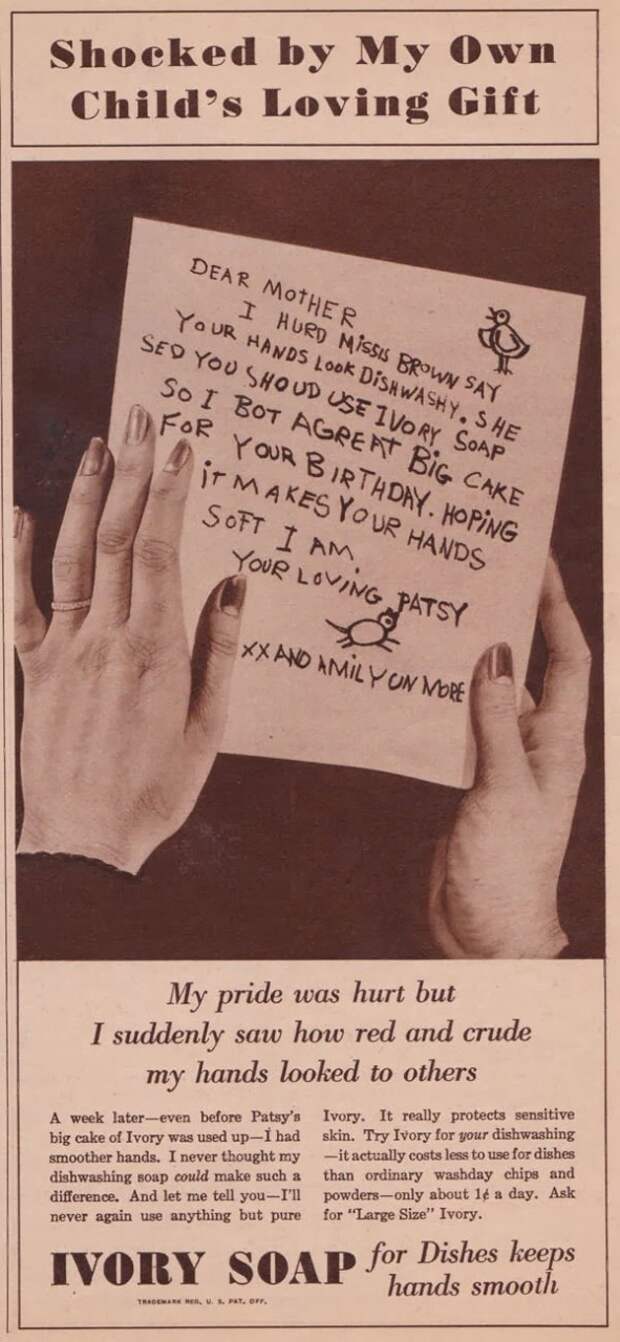 Shocked by My Own
Child's Loving Gift
DEAR MOTHER
I HURD MISSIS BROWN SAY
YOUR HANDS LOOK DISHWASHY. SHE
SED YOU SHOUD USE IVORY SOAP
SO I BOT A GREAT BIG CAKE
FOR YOUR BIRTHDAY. HOPING
IT MAKES YOUR HANDS
SOFT I AM
YOUR LOVING PATSY
XX AND A MILYUN MORE
My pride was hurt but
I suddenly saw how red and crude
my hands looked to others
A week later—even before Patsy's
big cake of Ivory was used up—I had
smoother hands. I never thought my
dishwashing soap could make such a
difference. And let me tell you—I'll
never again use anything but pure
Ivory. It really protects sensitive
skin. Try Ivory for your dishwashing
—it actually costs less to use for dishes
than ordinary washday chips and
powders—only about 1¢ a day. Ask
for "Large Size" Ivory.
IVORY SOAP
for Dishes keeps
hands smooth
TRADEMARK REG. U. S. PAT. OFF.